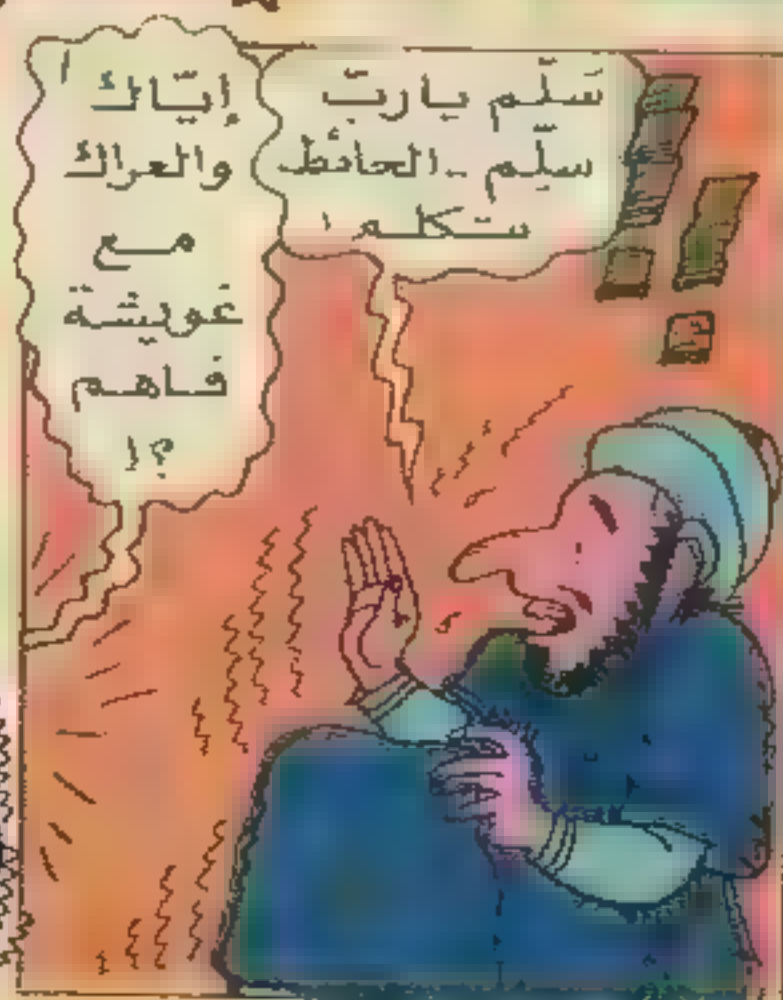 سَلّم يارب
سلّم .. الحائط
يتكلم !
إيّاك !
والعراك
مع
غويشة
فاهم
؟!